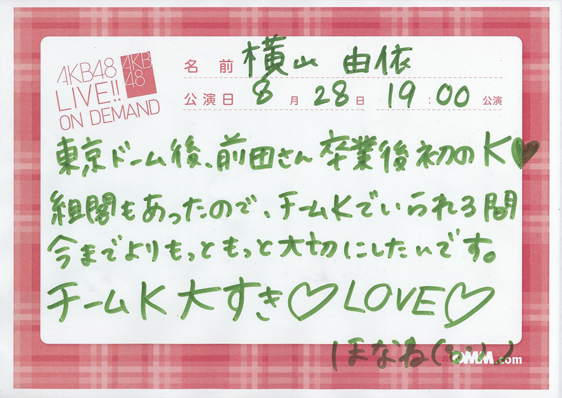 AKB48
LIVE!!
ON DEMAND
AKB
48
名前 横山 由依
公演日 8月28日 19:00公演
東京ドーム後、前田さん卒業後初のK♥
組閣もあったので、チームKでいられる間
今までよりもっともっと大切にしたいです。
チームK大すき♡LOVE♡
ほなね
DMM.com